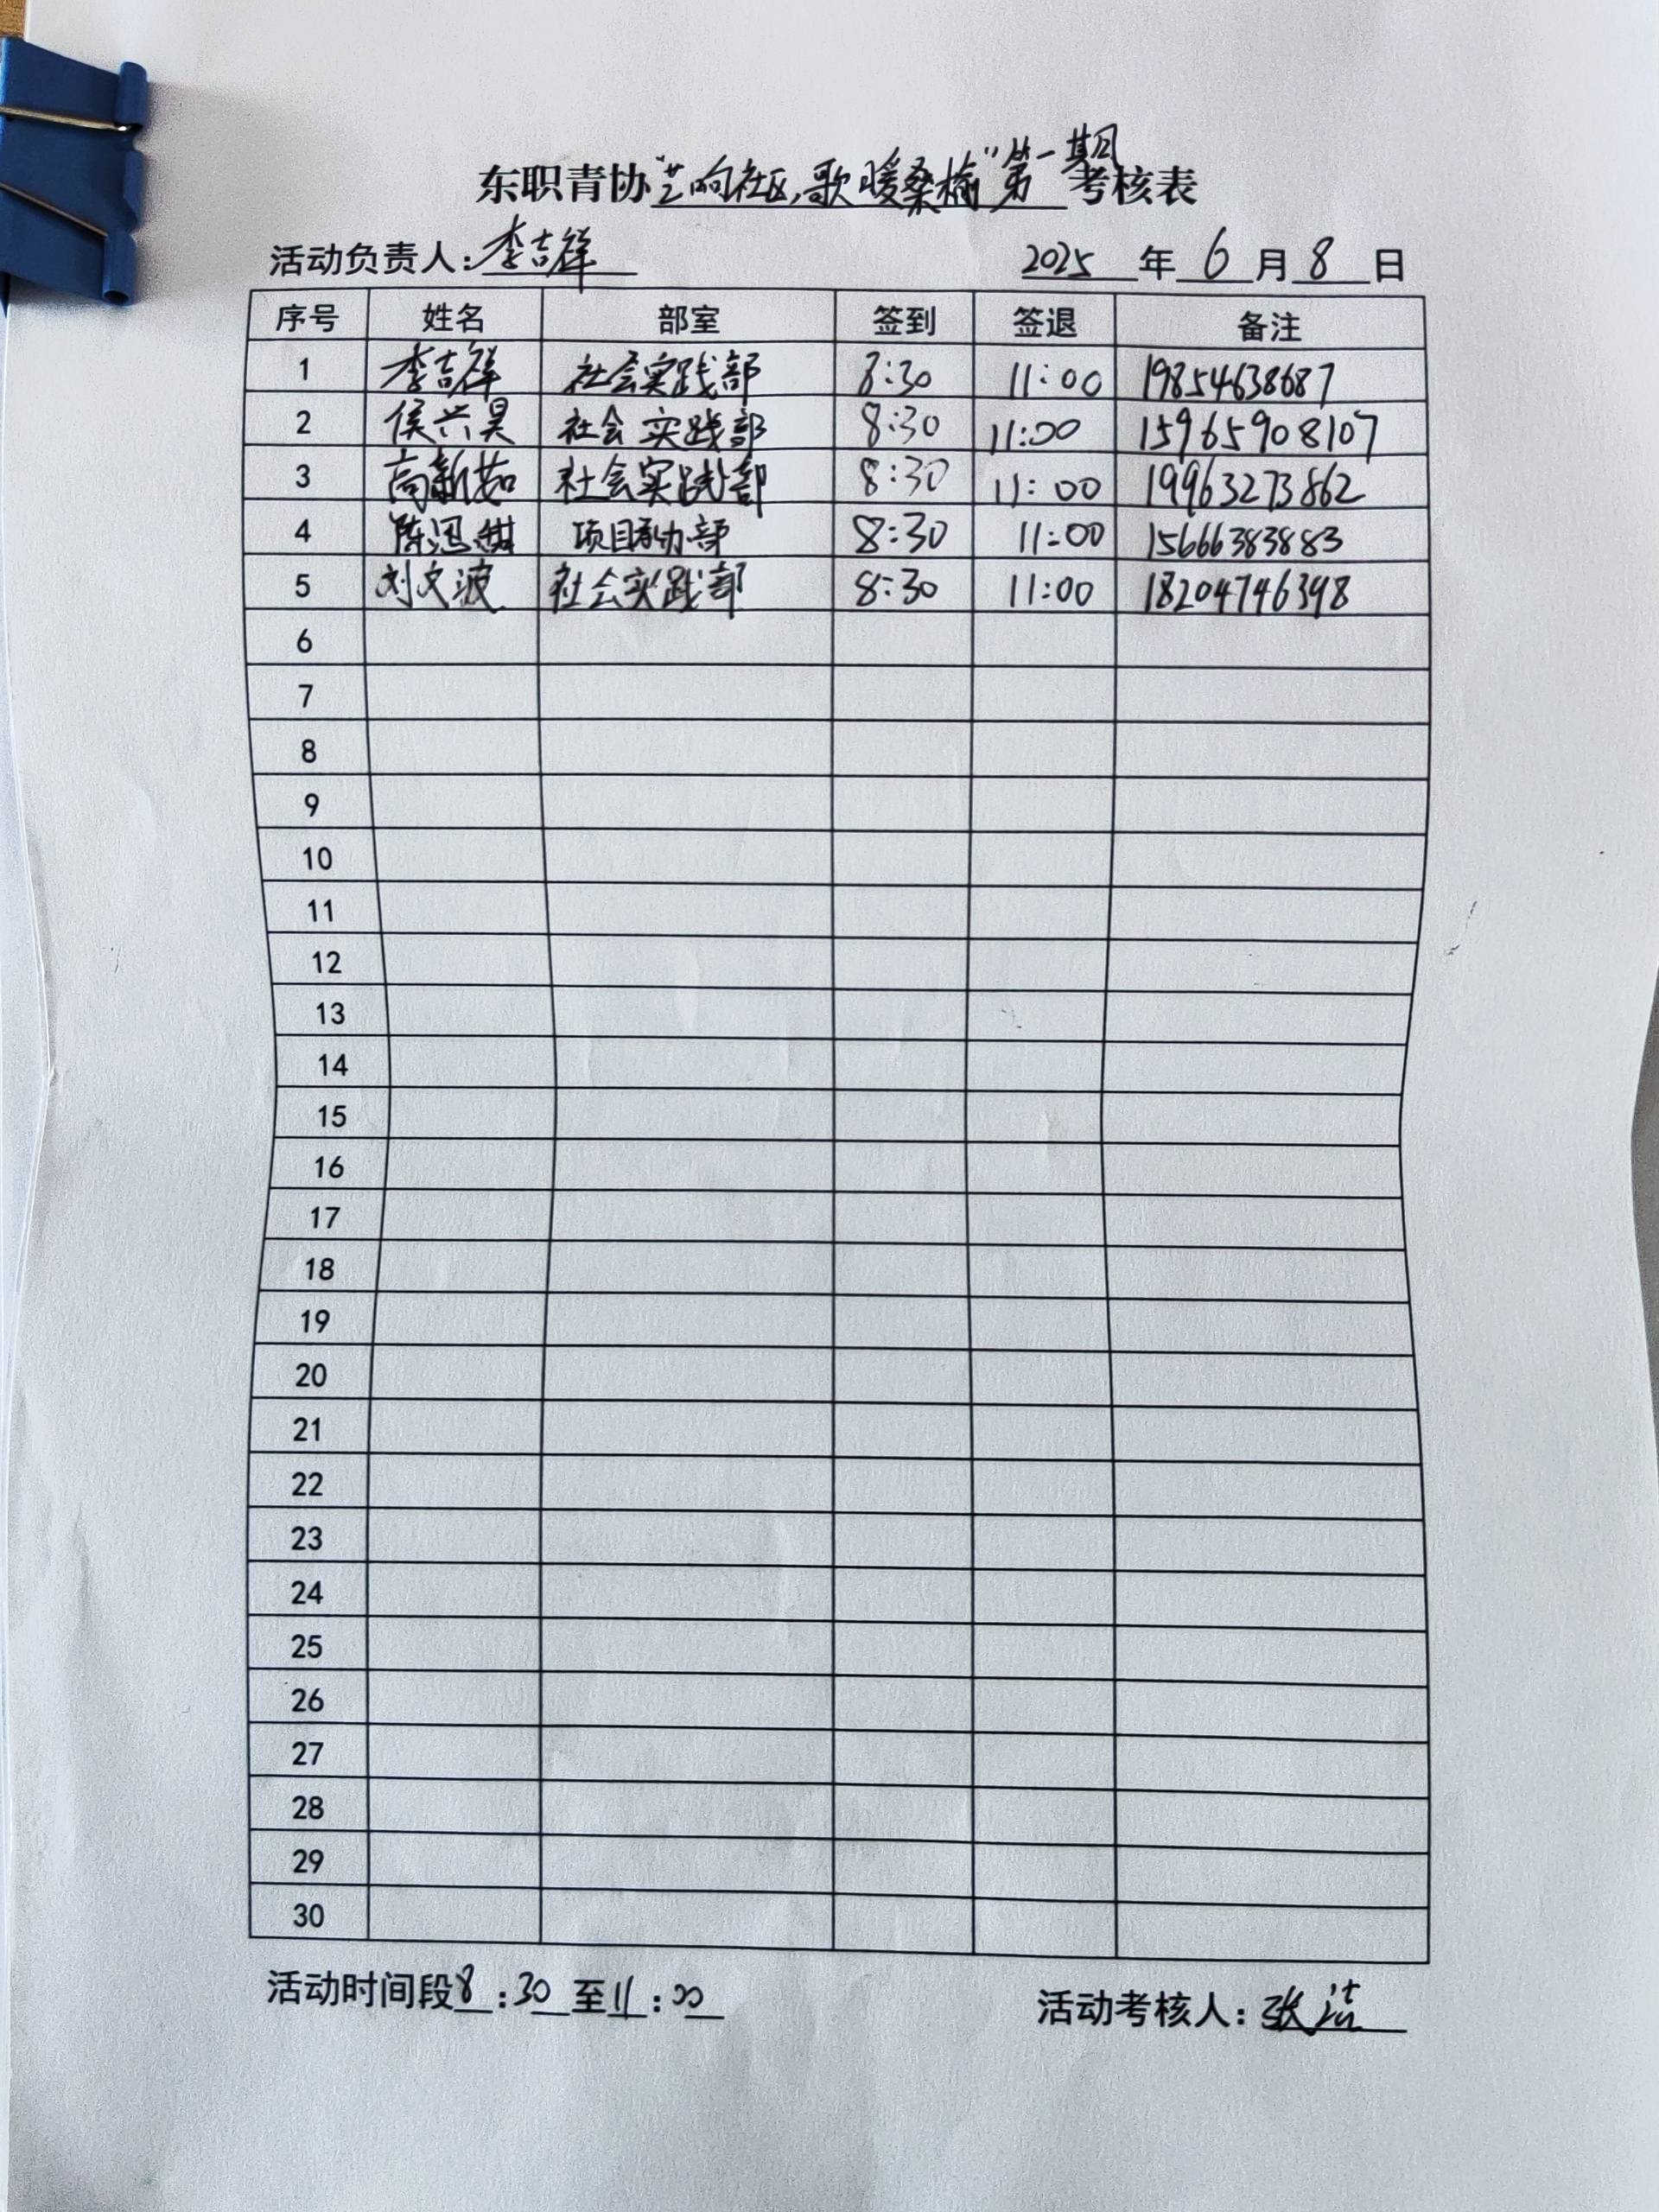 东职青协"艺响社区,歌暖桑榆"第一期考核表
活动负责人:李吉祥 2025年6月8日
序号 姓名 部室 签到 签退 备注
1 李吉祥 社会实践部 8:30 11:00 19854638687
2 侯兴昊 社会实践部 8:30 11:00 15965908107
3 高新茹 社会实践部 8:30 11:00 19963273862
4 8:30 11:00 15666383883
5 刘文波 社会实践部 8:30 11:00 18204746398
6
7
8
9
10
11
12
13
14
15
16
17
18
19
20
21
22
23
24
25
26
27
28
29
30
活动时间段8:30至11:00 活动考核人:张洁